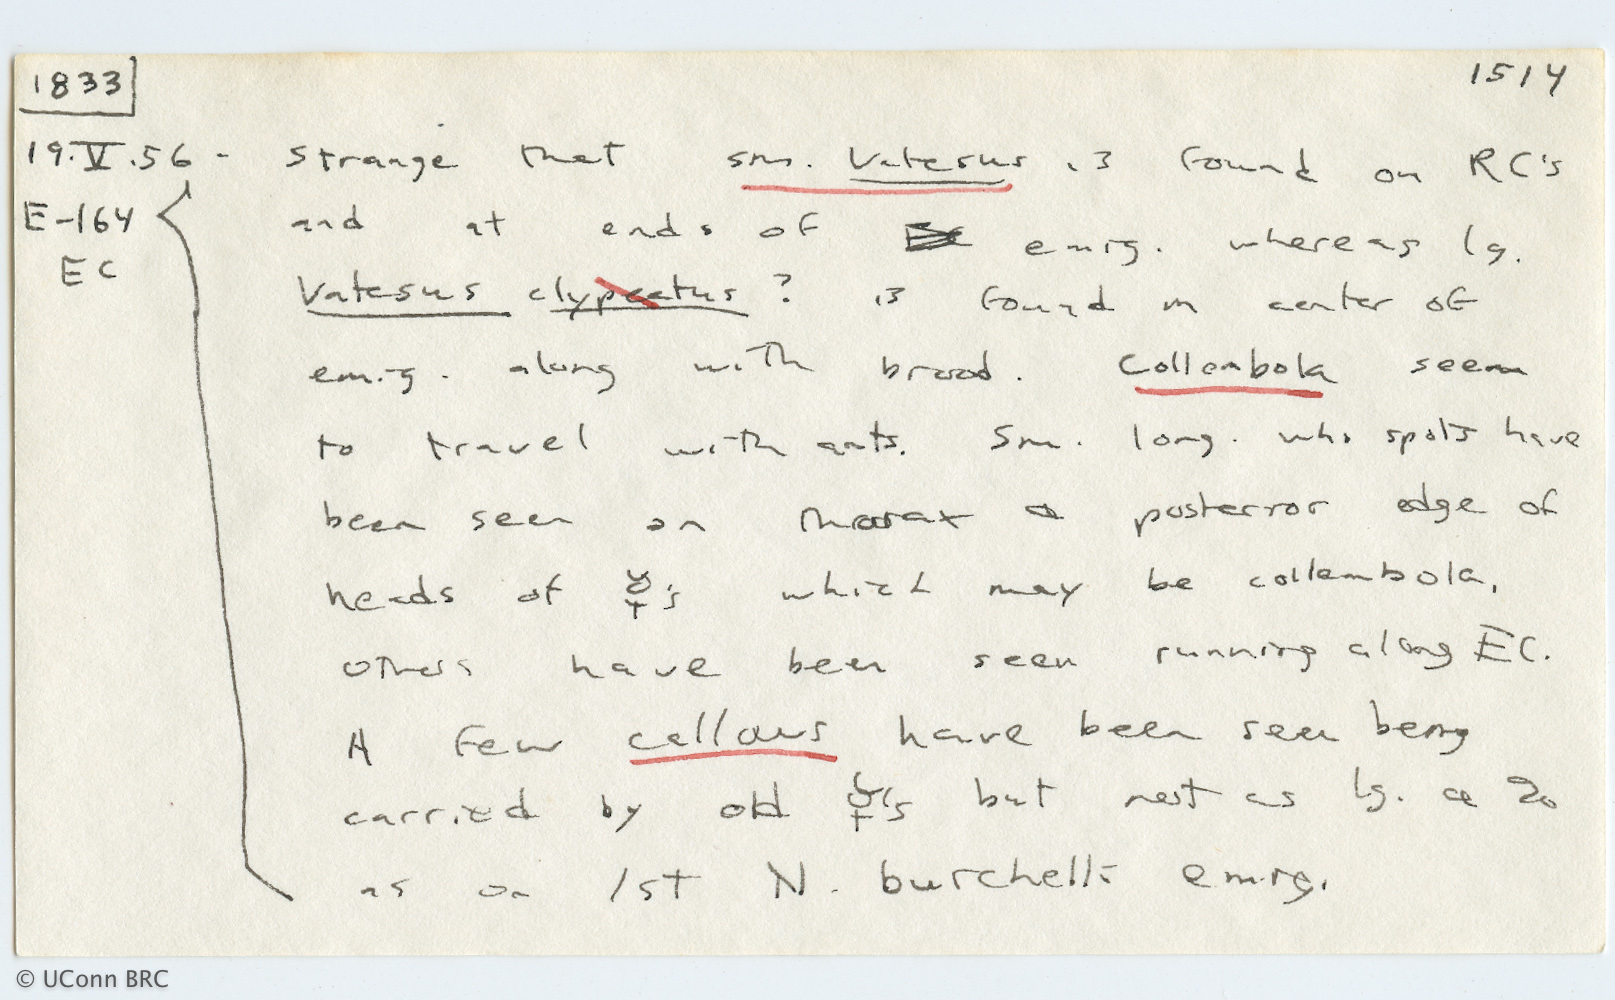 1833
1514
19.V.56 - Strange that sm. Vatesus is found on RC's
E-164 and at ends of emig. whereas lg.
EC
Vatesus clypeatus ? is found in center of
emig. along with brood. Collembola seem
to travel with ants. Sm. long. whi spots have
been seen on thorax posterior edge of
heads of ☿'s which may be collembola,
others have been seen running along EC.
A few callows have been seen being
carried by old ☿'s but not as lg. a %
as on 1st N. burchelli emig.
© UConn BRC